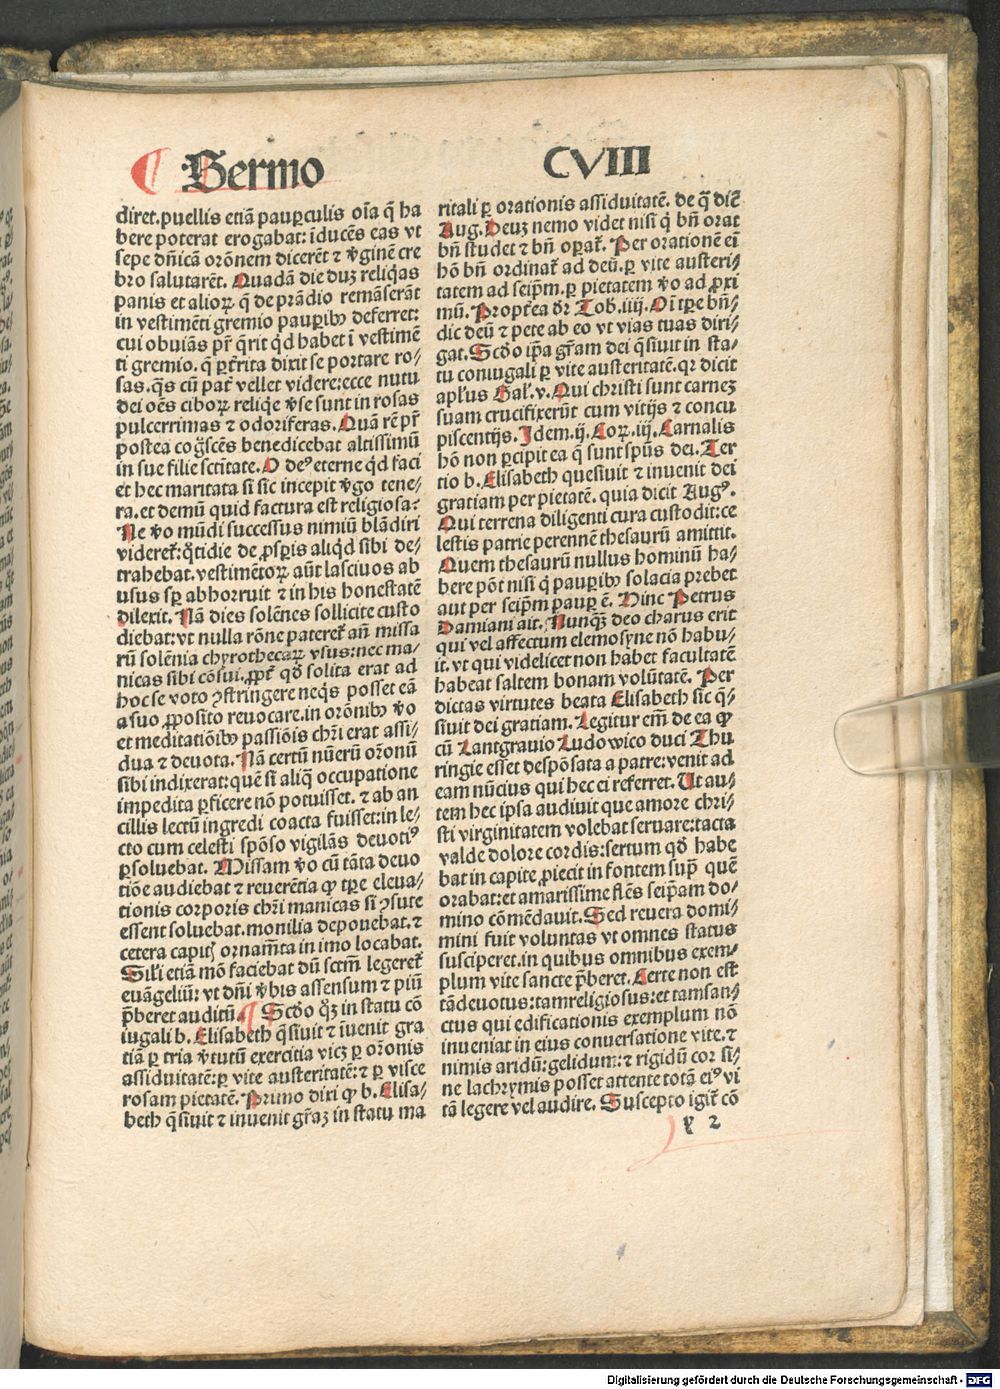 Sermo CVIII
diret. puellis etiā pauꝑculis oīa q̄ ha
bere poterat erogabat: īducēs eas vt
sepe dn̄icā orōnem dicerēt ⁊ v̄ginē cre
bro salutarēt. Quadā die duꝫ reliq̇as
panis et alioꝝ q̄ de prādio remāserāt
in vestimēti gremio pauꝑibꝰ deferret:
cui obuiās pr̄ q̄rit qd habet ī vestimē
ti gremio. q̄ ꝑt̄rita dixit se portare ro⸗
sas. q̄s cū pat̄ vellet videre: ecce nutu
dei oēs ciboꝝ reliq̇e v̄se sunt in rosas
pulcerrimas ⁊ odoriferas. Quā rē pr̄
postea cog̊scēs benedicebat altissimū
in sue filie sctitate. O deꝰ eterne qd faci
et hec maritata si sic incepit v̄go tene⸗
ra. et demū quid factura est religiosa?
Ne v̊o mūdi successus nimiū blādiri
videret̄: q̇tidie de ꝓsꝑis aliqd sibi de⸗
trahebat. vestimētoꝝ aūt lasciuos ab
usus sꝑ abhorruit ⁊ in his honestatē
dilexit. Nā dies solēnes sollicite custo
diebat: vt nulla rōne pateret̄ an̄ missa
rū solēnia chyrothecaꝝ vsus: nec ma⸗
nicas sibi cōsui. ꝓpt̄ qd̄ solita erat ad
hoc se voto ꝯstringere neq̇s posset eā
a suo ꝓposito reuocare. in orōnibꝰ v̊o
et meditatiōibꝰ passiōis chr̄i erat assi⸗
dua ⁊ deuota. Nā certū nūerū orōnū
sibi indixerat: quē si aliq̄ occupatione
impedita ꝑficere nō potuisset. ⁊ ab an
cillis lectū ingredi coacta fuisset: in le⸗
cto cum celesti spōso vigilās deuotiꝰ
ꝑsoluebat. Missam v̊o cū tāta deuo
tiōe audiebat ⁊ reuerētia ꝙ tꝑe eleua⸗
tionis corporis chr̄i manicas si ꝯsute
essent soluebat. monilia deponebat. ⁊
cetera capitꝭ ornam̄ta in imo locabat.
Sil'i etiā mō faciebat dū sctm̄ legeret̄
euāgeliū: vt dn̄i v̄bis assensum ⁊ piū
p̄beret auditū. ¶ Scd̊o q̊ꝫ in statu cō
iugali b. Elisabeth q̄siuit ⁊ īuenit gra
tiā ꝑ tria v̄tutū exercitia vicꝫ ꝑ orōnis
assiduitatē: ꝑ vite austeritatē: ⁊ ꝑ visce
rosam pietatē. Primo diri ꝙ b. Elisa⸗
beth q̄siuit ⁊ inuenit gr̄aꝫ in statu ma
ritali ꝑ orationis assiduitatē. de q̄ dic̄
Aug. Deuꝫ nemo videt nisi q̇ bn̄ orat
bn̄ studet ⁊ bn̄ oꝑat̄. Per orationē eī
hō bn̄ ordinat̄ ad deū. ꝑ vite austeri⸗
tatem ad seip̄m. ꝑ pietatem v̊o ad ꝓxi
mū. Propt̄ea dr̄ Tob. iiij. Oī tꝑe bn̄⸗
dic deū ⁊ pete ab eo vt vias tuas diri⸗
gat. Scd̊o ip̄a gr̄am dei q̄siuit in sta⸗
tu coniugali ꝑ vite austeritatē. qꝛ dicit
apl'us Gal'. v. Qui christi sunt carneꝫ
suam crucifixerūt cum vitijs ⁊ concu
piscentijs. Idem .ij. Coꝝ. iij. Carnalis
hō non ꝑcipit ea q̄ sunt spūs dei. Ter
tio b. Elisabeth quesiuit ⁊ inuenit dei
gratiam per pietatē. quia dicit Augꝰ.
Qui terrena diligenti cura custodit: ce
lestis patrie perennē thesaurū amittit.
Quem thesaurū nullus hominū ha⸗
bere pōt nisi q̇ pauꝑibꝰ solacia prebet
aut per seip̄m pauꝑ ē. Hinc Petrus
Damiani ait. Nunq̄ꝫ deo charus erit
qui vel affectum elemosyne nō habu⸗
it. vt qui videlicet non habet facultatē
habeat saltem bonam volūtatē. Per
dictas virtutes beata Elisabeth sic q̄⸗
siuit dei gratiam. Legitur em̄ de ea ꝙ
cū Lantgrauio Ludowico duci Thu
ringie esset despōsata a patre: venit ad
eam nūcius qui hec ei referret. Ut au⸗
tem hec ipsa audiuit que amore chri⸗
sti virginitatem volebat seruare: tacta
valde dolore cordis: sertum qd̄ habe
bat in capite ꝓiecit in fontem suꝑ quē
orabat: et amarissime flēs seip̄am do⸗
mino cōmēdauit. Sed reuera domi⸗
mini fuit voluntas vt omnes status
susciperet. in quibus omnibus exem⸗
plum vite sancte p̄beret. Certe non est
tā deuotus: tam religiosus: et tam san⸗
ctus qui edificationis exemplum nō
inueniat in eius conuersatione vite. ⁊
nimis aridū: gelidum: ⁊ rigidū cor si⸗
ne lachrymis posset attente totā eiꝰ vi
tā legere vel audire. Suscepto igit̄ cō
y 2
Digitalisierung gefördert durch die Deutsche Forschungsgemeinschaft - DFG